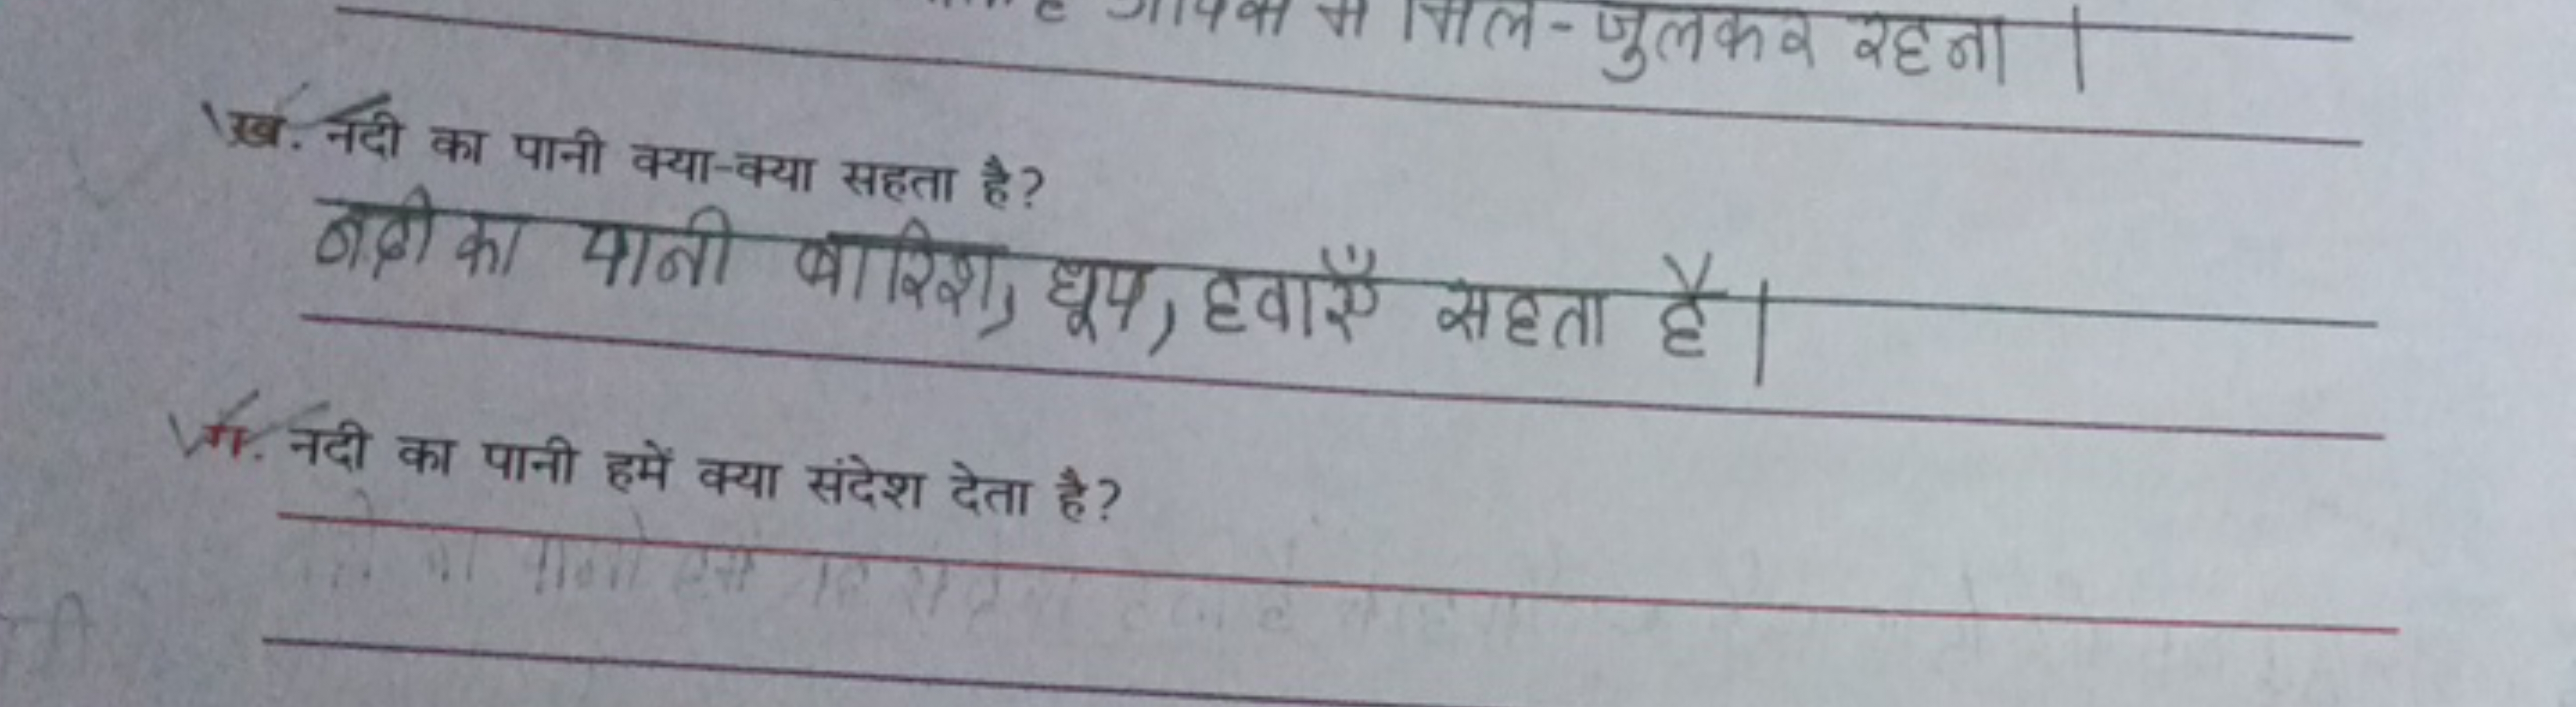 मिल-जुलकर रहना |
ख. नदी का पानी क्या-क्या सहता है?
नदी का पानी बारिश, धूप, हवाएँ सहता है |
ग. नदी का पानी हमें क्या संदेश देता है?